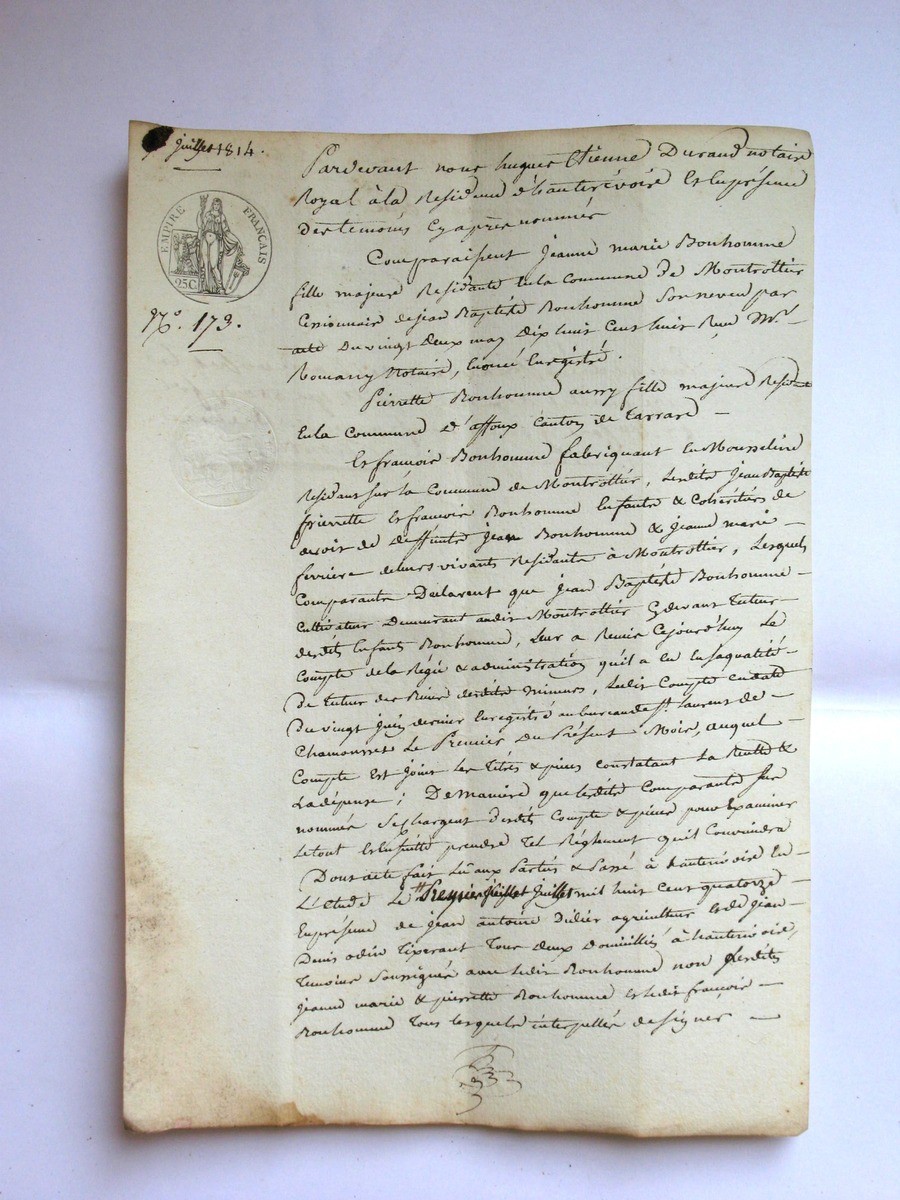 Juillet 1814.
EMPIRE FRANÇAIS
25C
N°. 173.
Pardevant nous hugues Etienne Durand notaire
Royal à la Residence d'hauterivoire Et En présence
Des temoins Cy après nommés
Comparaissent Jeanne marie Bonhomme
fille majeure Residante En la Commune de Montrottier
Cessionnaire de jean Baptiste Bonhomme Son neveu par
acte Du vingt Deux may Dix huit Cent huit Reçu Mr.
Romany Notaire, Enregistré.
Pierrette Bonhomme aussy fille majeure Residante
En la Commune d'affoux Canton de Tarrare —
Et françois Bonhomme fabriquant En Mousseline
Residant sur la Commune de Montrottier, Lesdits Jean Baptiste
pierrette Et françois Bonhomme Enfants & Cohéritiers de
droit de Deffunts Jean Bonhomme & Jeanne marie —
ferriere de leurs vivants Residants à Montrottier, Lesquels
Comparants Déclarent que Jean Baptiste Bonhomme —
Cultivateur Demeurant audit Montrottier Cydevant Tuteur —
desdits Enfants Bonhomme, Leur a Remis Cejourd'huy Le
Compte de la Régie & administration qu'il a Eu En saqualité —
De Tuteur des Biens desdits mineurs, Ledit Compte En date
Du vingt Juin dernier Enregistré au bureau de St. Laurent de —
Chamousset Le Premier Du Présent Mois, auquel —
Compte Est Joint Les Titres & pieces Constatant La Recette &
La dépense; De Manière que lesdits Comparants Sus
nommés Se Chargent desdits Compte & pieces pour Examiner
Le tout Et Ensuitte prendre Tel Réglement qu'il Conviendra
Dont acte fait Lû aux Parties & Passé à hauterivoire En
L'étude Le Premier Juillet mil huit Cent quatorze —
En présence de Jean antoine Dulier agriculteur Et de Jean —
Denis odin Tixerant Tous deux Domiciliés à hauterivoire,
Temoins Soussignés avec Ledit Bonhomme non Lesdites
Jeanne marie & pierrette Bonhomme Et ledit françois —
Bonhomme Tous lesquels interpellés de signer —